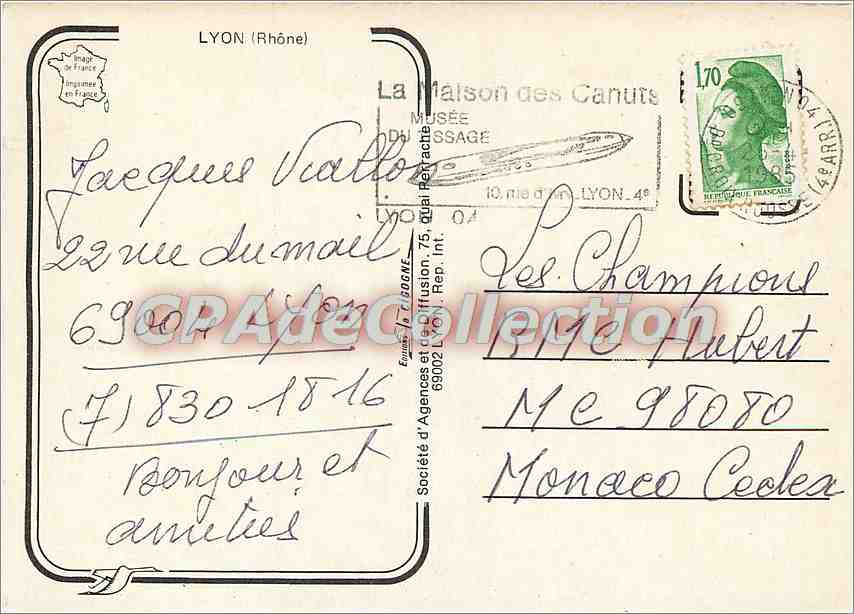 LYON (Rhône)
Image
de France
Imprimée
en France
Jacques Viallon
22 rue du mail
69004 Lyon
(7) 830 1816
Bonjour et
amitiés
Editions la CIGOGNE
Société d'Agences et de Diffusion. 75, quai Perrache
69002 LYON. Rep. Int.
La Maison des Canuts
MUSÉE
DU TISSAGE
10, rue d'Ivry_LYON_4e
LYON 04
1,70
REPUBLIQUE FRANÇAISE
Les Champions
RMC Hubert
MC 98080
Monaco Cedex
CPAdeCollection